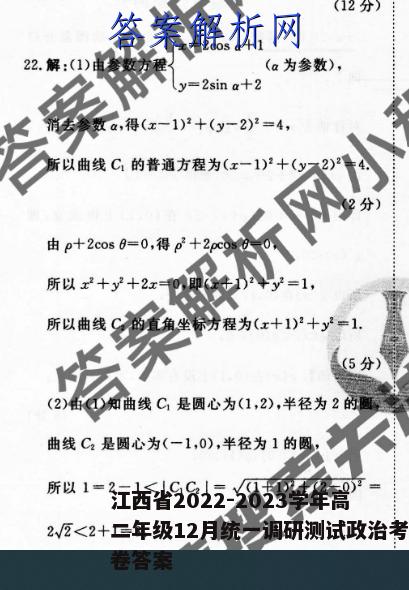 (12 分)
答案解析网
x=2cos α+1
22.解:(1)由参数方程{ (α 为参数),
y=2sin α+2
消去参数 α,得(x-1)²+(y-2)²=4,
所以曲线 C₁ 的普通方程为(x-1)²+(y-2)²=4.
(2 分)
由 ρ+2cos θ=0,得 ρ²+2ρcos θ=0,
所以 x²+y²+2x=0,即(x+1)²+y²=1,
所以曲线 C₂ 的直角坐标方程为(x+1)²+y²=1.
(5 分)
(2)由(1)知曲线 C₁ 是圆心为(1,2),半径为 2 的圆,
曲线 C₂ 是圆心为(-1,0),半径为 1 的圆,
所以 1=2-1<|C₁C₂|=√(1+1)²+(2-0)²=
2√2<2+1=3
江西省2022-2023学年高
二年级12月统一调研测试政治考
卷答案
答案解析网小